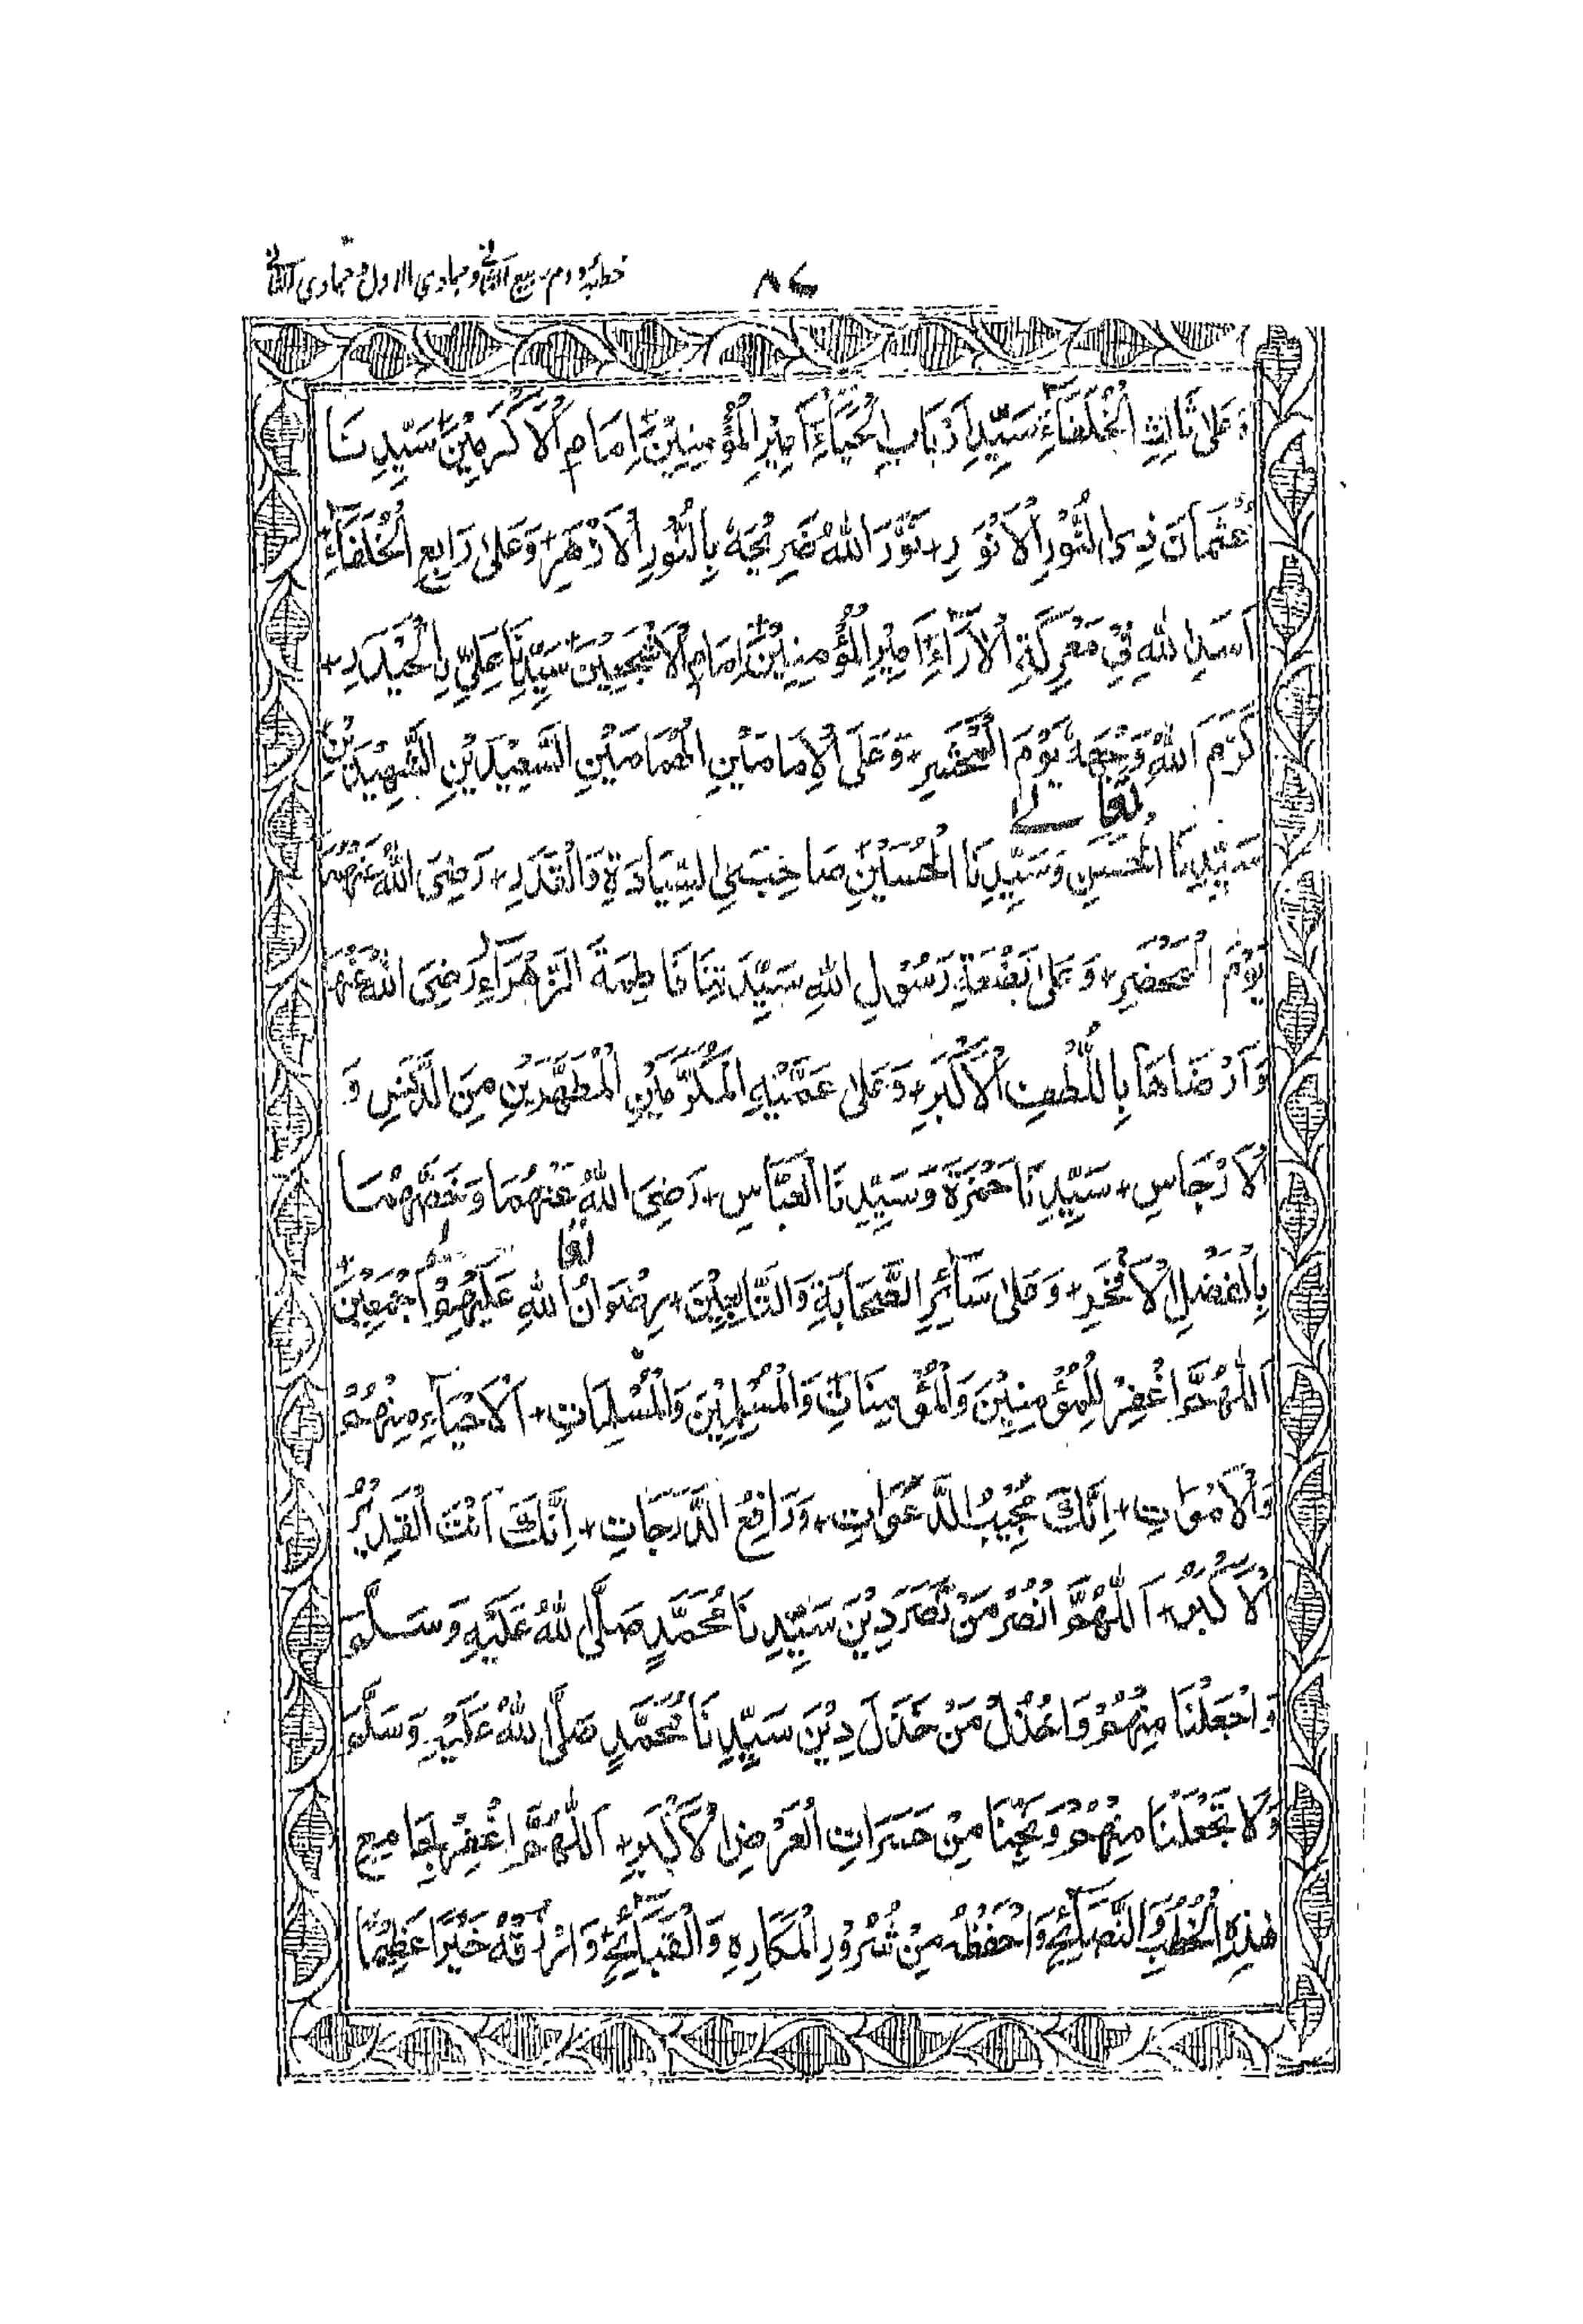 خطبہ دوم ربیع الثانی و جمادی الاول و جمادی الثانی
۸۷
وَعَلٰی ثَالِثِ الْخُلَفَآءِ سَیِّدِ اَرْبَابِ الْحَیَآءِ اَمِیْرِ الْمُؤْمِنِیْنَ + اِمَامِ الْاَکْرَمِیْنَ + سَیِّدِنَا
عُثْمَانَ ذِی النُّوْرِ الْاَنْوَرِ + نَوَّرَ اللّٰهُ ضَرِیْحَهٗ بِالنُّوْرِ الْاَزْهَرِ + وَعَلٰی رَابِعِ الْخُلَفَآءِ +
اَسَدِ اللّٰهِ فِیْ مَعْرِکَةِ الْاٰرَآءِ اَمِیْرِ الْمُؤْمِنِیْنَ + اِمَامِ الْاَشْجَعِیْنَ + سَیِّدِنَا عَلِیِّ ِالْحَیْدَرِ +
کَرَّمَ اللّٰهُ وَجْهَهٗ یَوْمَ الْمَحْشَرِ + وَعَلَی الْاِمَامَیْنِ الْهُمَامَیْنِ السَّعِیْدَیْنِ الشَّهِیْدَیْنِ
سَیِّدِنَا الْحَسَنِ وَسَیِّدِنَا الْحُسَیْنِ صَاحِبَیِ السِّیَادَةِ وَالْقَدَرِ + رَضِیَ اللّٰهُ تَعَالٰے عَنْهُمَا
یَوْمَ الْمَحْضَرِ + وَعَلٰی بَضْعَةِ رَسُوْلِ اللّٰهِ سَیِّدَتِنَا فَاطِمَةَ الزَّهْرَآءِ رَضِیَ اللّٰهُ عَنْهَا
وَاَرْضَاهَا بِاللُّطْفِ الْاَکْبَرِ + وَعَلٰی عَمَّیْهِ الْمُکَرَّمَیْنِ الْمُطَهَّرَیْنِ مِنَ الدَّنَسِ وَ
الْاَرْجَاسِ + سَیِّدِنَا حَمْزَةَ وَسَیِّدِنَا الْعَبَّاسِ + رَضِیَ اللّٰهُ عَنْهُمَا وَنَفَعَهُمَا
بِالْفَضْلِ الْاَفْخَرِ + وَعَلٰی سَآئِرِ الصَّحَابَةِ وَالتَّابِعِیْنَ + رِضْوَانُ اللّٰهِ تَعَا عَلَیْهِمْ اَجْمَعِیْنَ +
اَللّٰهُمَّ اغْفِرْ لِلْمُؤْمِنِیْنَ وَالْمُؤْمِنَاتِ وَالْمُسْلِمِیْنَ وَالْمُسْلِمَاتِ + اَلْاَحْیَآءِ مِنْهُمْ
وَالْاَمْوَاتِ + اِنَّكَ مُجِیْبُ الدَّعَوَاتِ + وَرَافِعُ الدَّرَجَاتِ + اِنَّكَ اَنْتَ الْقَدِیْرُ
الْاَکْبَرُ + اَللّٰهُمَّ انْصُرْ مَنْ نَصَرَ دِیْنَ سَیِّدِنَا مُحَمَّدٍ صَلَّی اللّٰهُ عَلَیْهِ وَسَلَّمَ
وَاجْعَلْنَا مِنْهُمْ وَاخْذُلْ مَنْ خَذَلَ دِیْنَ سَیِّدِنَا مُحَمَّدٍ صَلَّی اللّٰهُ عَلَیْهِ وَسَلَّمَ
وَلَا تَجْعَلْنَا مِنْهُمْ وَنَجِّنَا مِنْ حَسَرَاتِ الْعَرْضِ الْاَکْبَرِ + اَللّٰهُمَّ اغْفِرْ لِجَامِعِ
هٰذِهِ الْخُطَبِ وَالنَّصَآئِحِ وَاحْفَظْهُ مِنْ شُرُوْرِ الْمَکَارِهِ وَالْقَبَآئِحِ + وَارْزُقْهُ خَیْرًا عَظِیْمًا